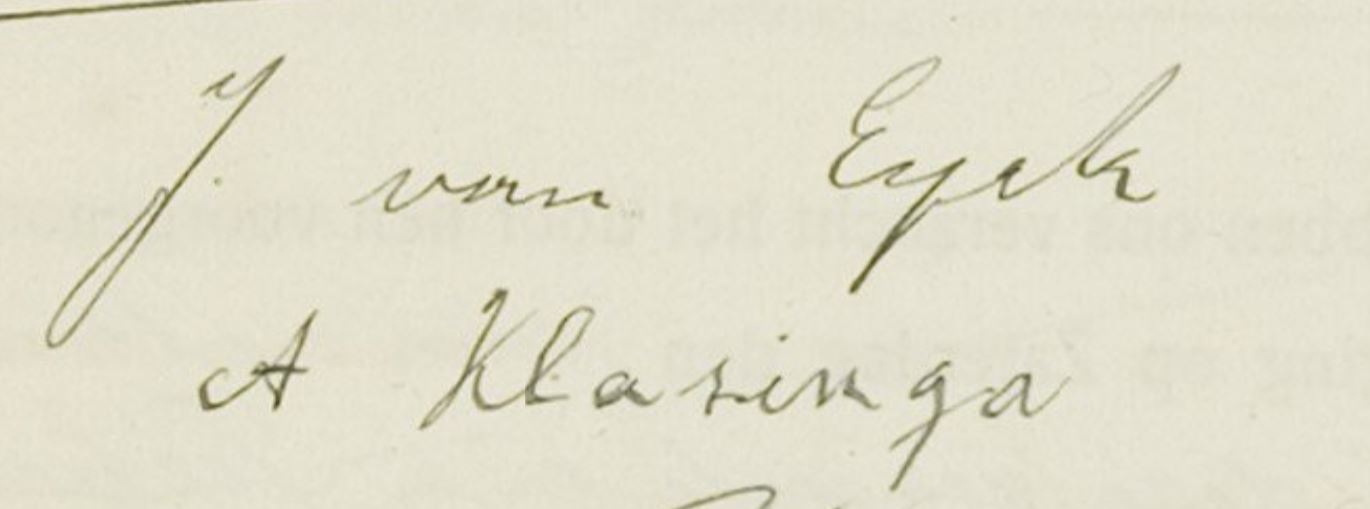 J. van Eyck
A Klasinga